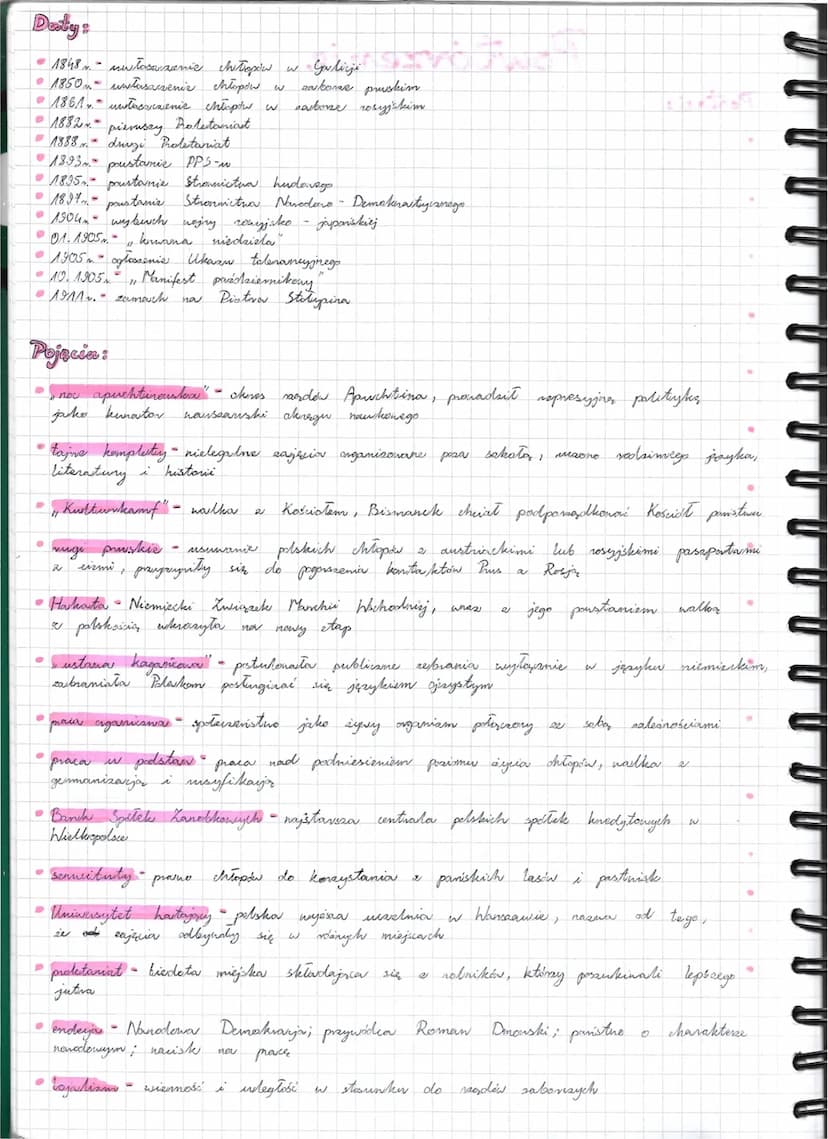 Daty:
1848r. - uwłaszczenie chłopów w Galicji
1850r. - uwłaszczenie chłopów w zaborze pruskim
1861r. - uwłaszczenie chłopów w zaborze rosyjskim
1882r. - pierwszy Proletariat
1888r. - drugi Proletariat
1893r. - powstanie PPS-u
1895r. - powstanie Stronnictwa Ludowego
1897r. - powstanie Stronnictwa Narodowo - Demokratycznego
1904r. - wybuch wojny rosyjsko - japońskiej
01.1905r. - „krwawa niedziela"
1905r. - ogłoszenie Ukazu tolerancyjnego
10.1905r. - „Manifest październikowy"
1911r. - zamach na Piotra Stołypina
Pojęcia:
„noc apuchtinowska" - okres rządów Apuchtina, prowadził represyjną politykę
jako kurator warszawski okręgu naukowego
tajne komplety - nielegalne zajęcia organizowane poza szkołą, uczono rodzimego języka,
literatury i historii
„Kulturkampf" - walka z Kościołem, Bismarck chciał podporządkować Kościół państwu
rugi pruskie - usuwanie polskich chłopów z austriackimi lub rosyjskimi paszportami
z ziemi, przyczyniły się do pogorszenia kontaktów Prus z Rosją
Hakata - Niemiecki Związek Marchii Wschodniej, wraz z jego powstaniem walka
z polskością wkroczyła na nowy etap
„ustawa kagańcowa" - postulowała publiczne zebrania wyłącznie w języku niemieckim,
zabraniała Polakom posługiwać się językiem ojczystym
praca organiczna - społeczeństwo jako żywy organizm połączony ze sobą zależnościami
praca u podstaw - praca nad podniesieniem poziomu życia chłopów, walka z
germanizacją i rusyfikacją
Bank Spółek Zarobkowych - najstarsza centrala polskich spółek kredytowych w
Wielkopolsce
serwituty - prawo chłopów do korzystania z pańskich lasów i pastwisk
Uniwersytet Latający - polska wyższa uczelnia w Warszawie, nazwa od tego,
że zajęcia odbywały się w różnych miejscach
proletariat - biedota miejska składająca się z rolników, którzy poszukiwali lepszego
jutra
endecja - Narodowa Demokracja; przywódca Roman Dmowski; państwo o charakterze
narodowym; nacisk na pracę
lojalizm - wierność i uległość w stosunku do rządów zaborczych